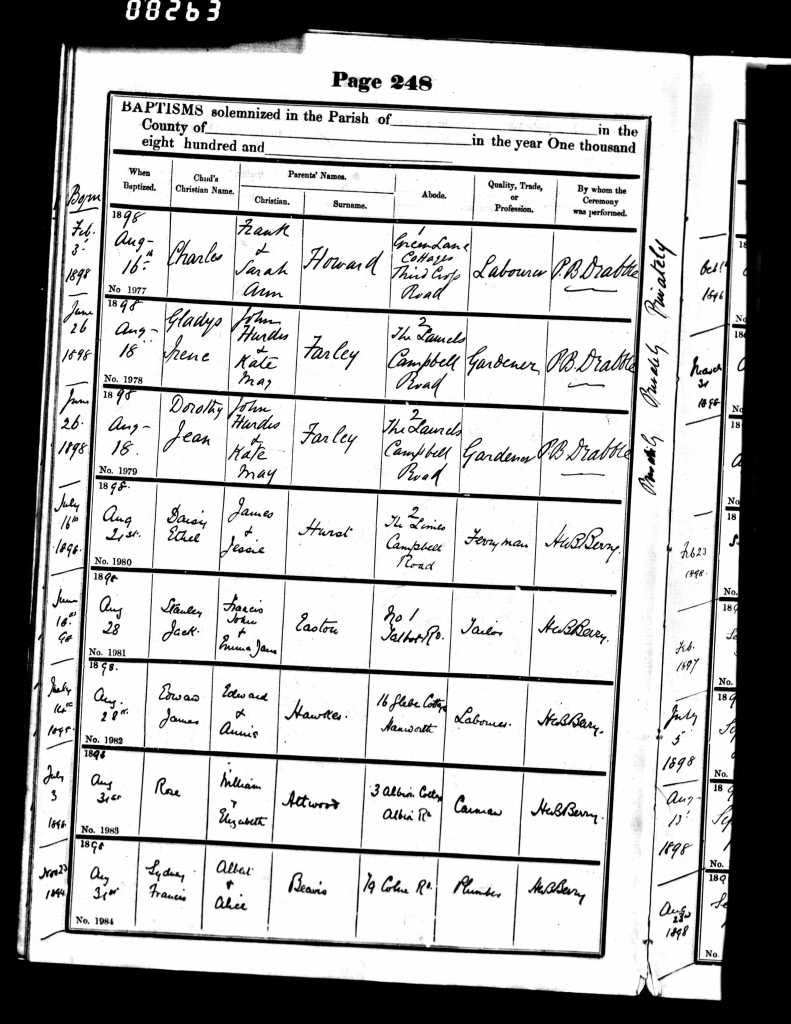 00263
Page 248
BAPTISMS solemnized in the Parish of in the
County of in the year One thousand
eight hundred and
When Baptized.
Child's Christian Name.
Parents' Names.
Christian.
Surname.
Abode.
Quality, Trade, or Profession.
By whom the Ceremony was performed.
Born
Feb. 3 1898
1898 Aug- 16th
No 1977
Charles
Frank & Sarah Ann
Howard
1 Green Lane Cottages Third Cross Road
Labourer
P.B. Drabble
June 26 1898
1898 Aug- 18
No. 1978
Gladys Irene
John Hurdis & Kate May
Farley
2 The Laurels Campbell Road
Gardener
P.B. Drabble
June 26. 1898
1898. Aug- 18.
No. 1979
Dorothy Jean
John Hurdis & Kate May
Farley
2 The Laurels Campbell Road
Gardener
P.B. Drabble
July 16th 1898.
1898. Aug 21st.
No. 1980
Daisy Ethel
James & Jessie
Hurst
2 The Limes Campbell Road
Ferryman
HWB Berry.
June 98
1898. Aug 28
No. 1981
Stanley Jack.
Francis John & Emma Jane
Easton
No 1 Talbot Rd.
Tailor
HWB Berry.
July 14th
1898. Aug. 28th.
No. 1982
Edward James
Edward & Annie
Hawkes.
16 Glebe Cottgs Hanworth
Labourer.
HWB Berry.
July 3 1898.
1898 Aug 31st
No. 1983
Rose
William & Elizabeth
Attwood
3 Albion Cottgs Albion Rd
Carman
HWB Berry.
Nov 23
1898 Aug 31st
No. 1984
Sydney Francis
Albert & Alice
Beavis
79 Colne Rd.
Plumber
HWB Berry
Privately Privately Privately
Oct 1896
March 31 1898
Feb 23 1898.
Feb. 1897
July 5 1898
Aug- 13 1898
Aug 1898